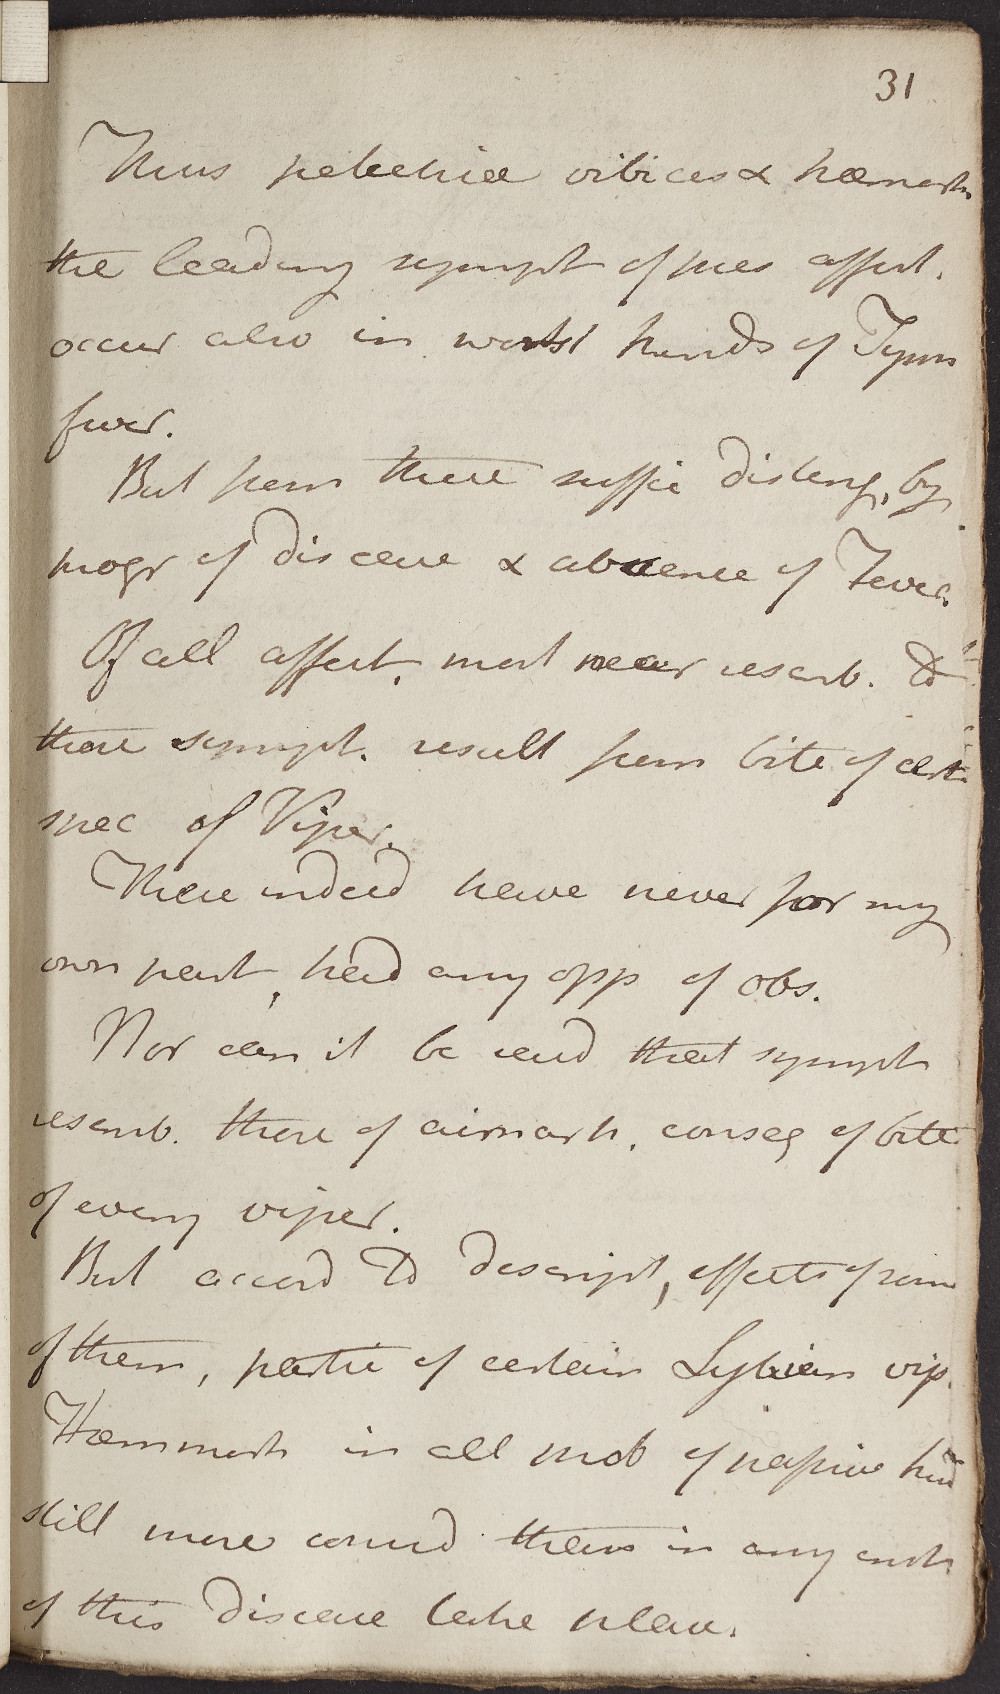 31
Thus petechiæ vibices & hæmorh
the leading sympt of pres affect.
occur also in worst kinds of Typh
fever.
But from these suffic disting, by
progr of disease & absence of Fever.
Of all affect, most near resemb. to
these sympt. result from bite of cert
spec of Viper.
These indeed have never for my
own part, had any opp of obs.
Nor can it be said that sympt
resemb. those of occur of bite
of every viper.
But accord to descript, effects of some
of them, partic of certain Lybian vip.
Hæmmorh in all prob of passive kind
still more consid than in any inst
of this disease take place.